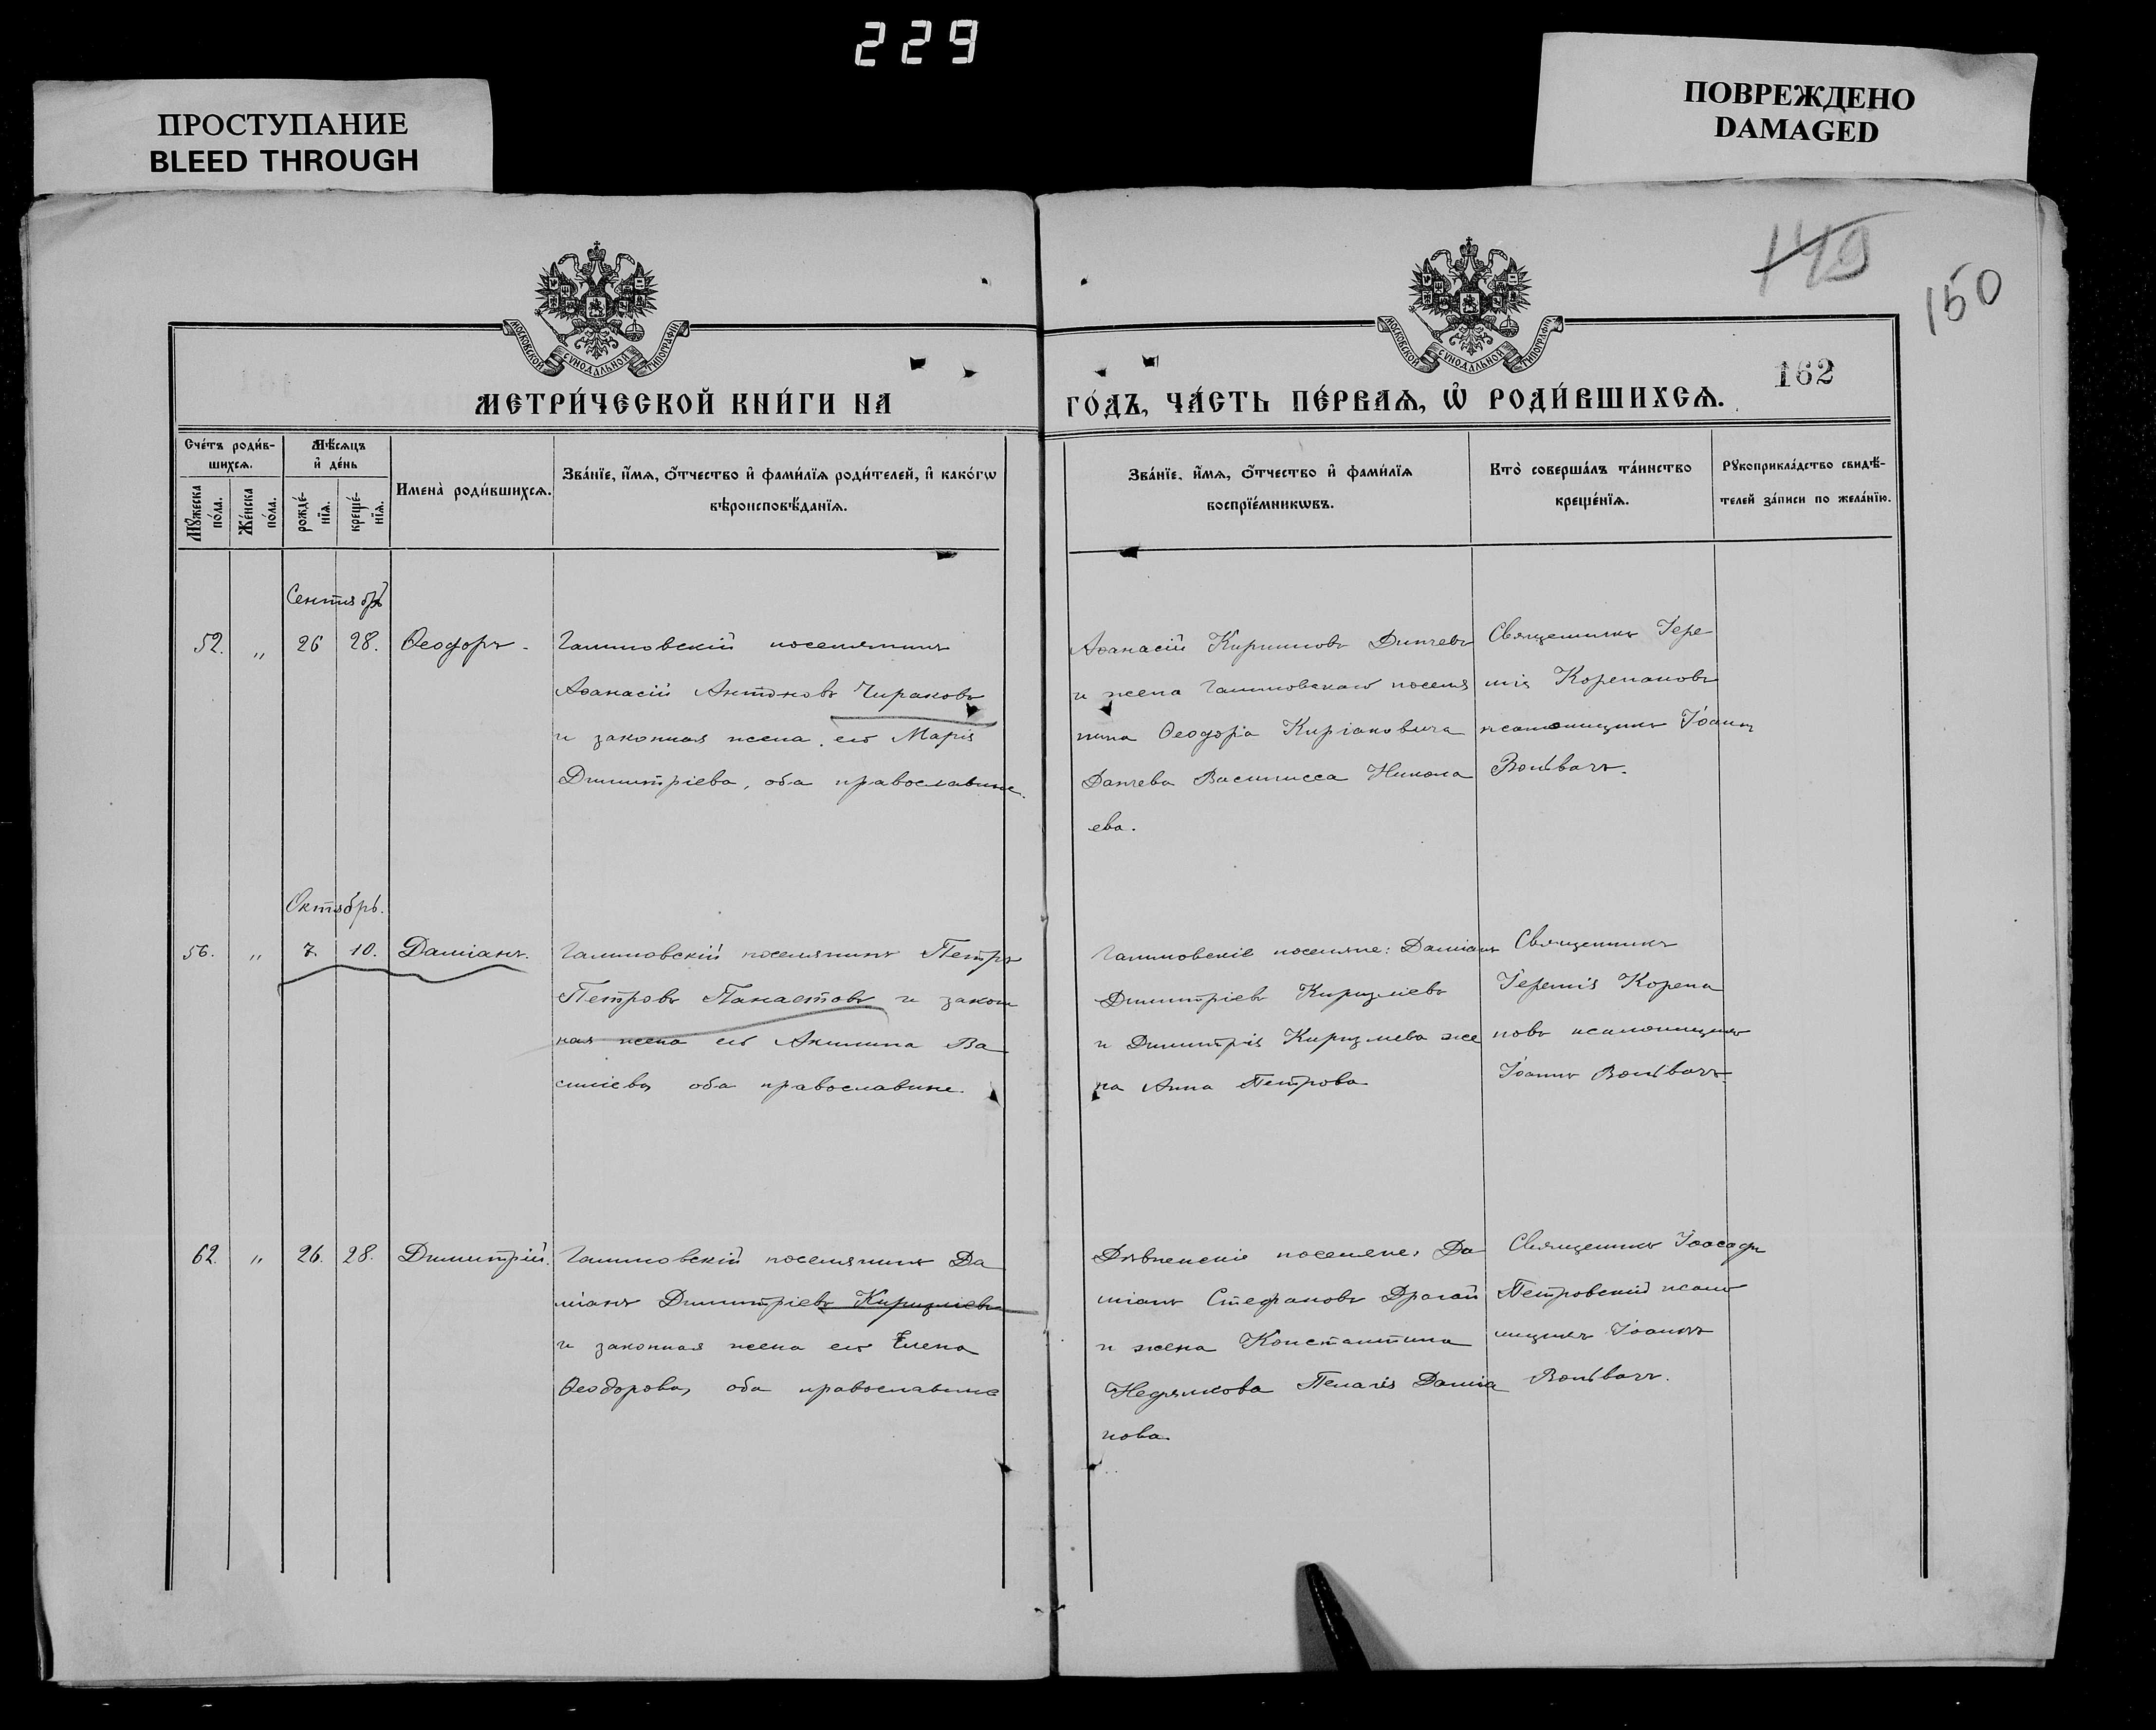 229
ПРОСТУПАНИЕ
BLEED THROUGH
ПОВРЕЖДЕНО
DAMAGED
149
150
162
МОСКОВСКОЙ СѴНОДАЛЬНОЙ ТИПОГРАФІИ
МОСКОВСКОЙ СѴНОДАЛЬНОЙ ТИПОГРАФІИ
МЕТРИ́ЧЕСКОЙ КНИ́ГИ НА
ГО́ДЪ, ЧА́СТЬ ПЕ́РВАѦ, Ѡ҆ РОДИ́ВШИХСѦ.
Сче́тъ роди́в-
шихсѧ.
Мꙋ́жеска по́ла.
Же́нска по́ла.
Мѣ́сѧцъ
и҆ де́нь
рожде́-
нїѧ.
креще́-
нїѧ.
Имена̀ роди́вшихсѧ.
Зва́нїе, и҆́мѧ, ѻ҆́тчество и҆ фами́лїѧ роди́телей, и҆ како́гѡ
вѣроисповѣ́данїѧ.
Зва́нїе, и҆́мѧ, ѻ҆́тчество и҆ фами́лїѧ
воспрїе́мникѡвъ.
Кто̀ соверша́лъ та́инство
креще́нїѧ.
Рꙋкоприкла́дство свидѣ́-
телей за́писи по жела́нїю.
Сентябрь
52. „ 26 28. Ѳеодоръ.
Галиловскій поселянинъ
Аѳанасій Антоновъ Чираковъ
и законная жена его Марія
Димитріева, оба православные.
Аѳанасій Кирилловъ
и жена Галиловскаго поселя
нина Ѳеодора Киріаковича
Данчева Василисса Никола
ева.
Священникъ Іере
мія Корепановъ
псаломщикъ Іоаннъ
Войвачъ.
Октябрь.
56. „ 7. 10. Даміанъ.
Галиловскій поселянинъ Петръ
Петровъ Панаетовъ и закон
ная жена его Акилина Ва
силіева, оба православные.
Галиловскіе поселяне: Даміанъ
Димитріевъ
и Димитрія же
на Анна Петрова
Священникъ
Іеремія Корепа
новъ псаломщикъ
Іоаннъ Войвачъ.
62. „ 26. 28. Димитрій.
Галиловскій поселянинъ Да
міанъ Димитріевъ
и законная жена его Елена
Ѳеодорова, оба православные
поселяне, Да
міанъ Стефановъ Драган
и жена Константина
Недялкова Пелагія Даміа
нова.
Священникъ Іоасафъ
Петровскій псалом
щикъ Іоаннъ
Войвачъ.